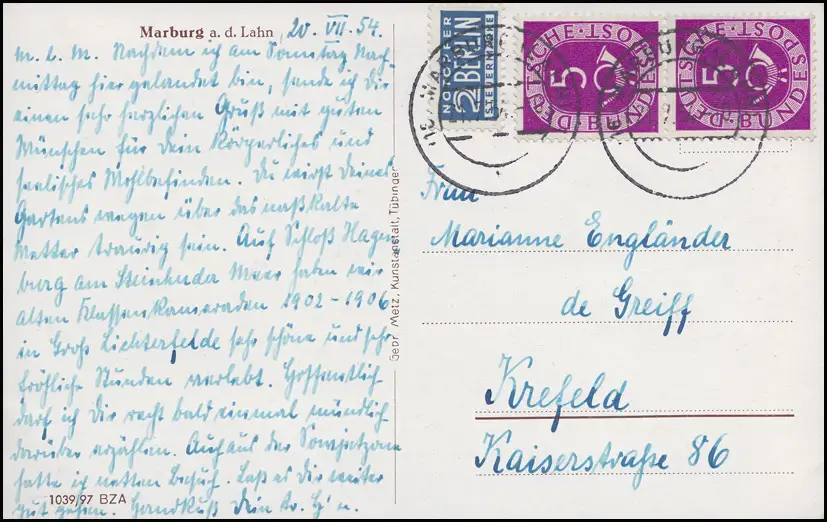 Marburg a. d. Lahn, 20. VII. 54.
m. l. M. Nachdem ich am Sonntag Nach-
mittag hier gelandet bin, sende ich dir
einen sehr herzlichen Gruß mit guten
Wünschen für Dein körperliches und
seelisches Wohlbefinden. Du wirst Deines
Gartens wegen über das naßkalte
Wetter traurig sein. Auf Schloß Hagen-
burg am Steinhuder Meer haben wir
alten Klassenkameraden 1902-1906
in Groß Lichterfelde sehr schöne und sehr
fröhliche Stunden verlebt. Hoffentlich
darf ich Dir recht bald einmal mündlich
darüber erzählen. Auch aus der Sowjetzone
hatte ich netten Besuch. Laß es dir weiter
gut gehen. Handkuß Dein tr.
1039/97 BZA
Gebr. Metz, Kunstanstalt, Tübingen
NOTOPFER
2 BERLIN
STEUERMARKE
DEUTSCHE BUNDESPOST
5
DEUTSCHE BUNDESPOST
5
MARBURG
Frau
Marianne Engländer
de Greiff
Krefeld
Kaiserstraße 86